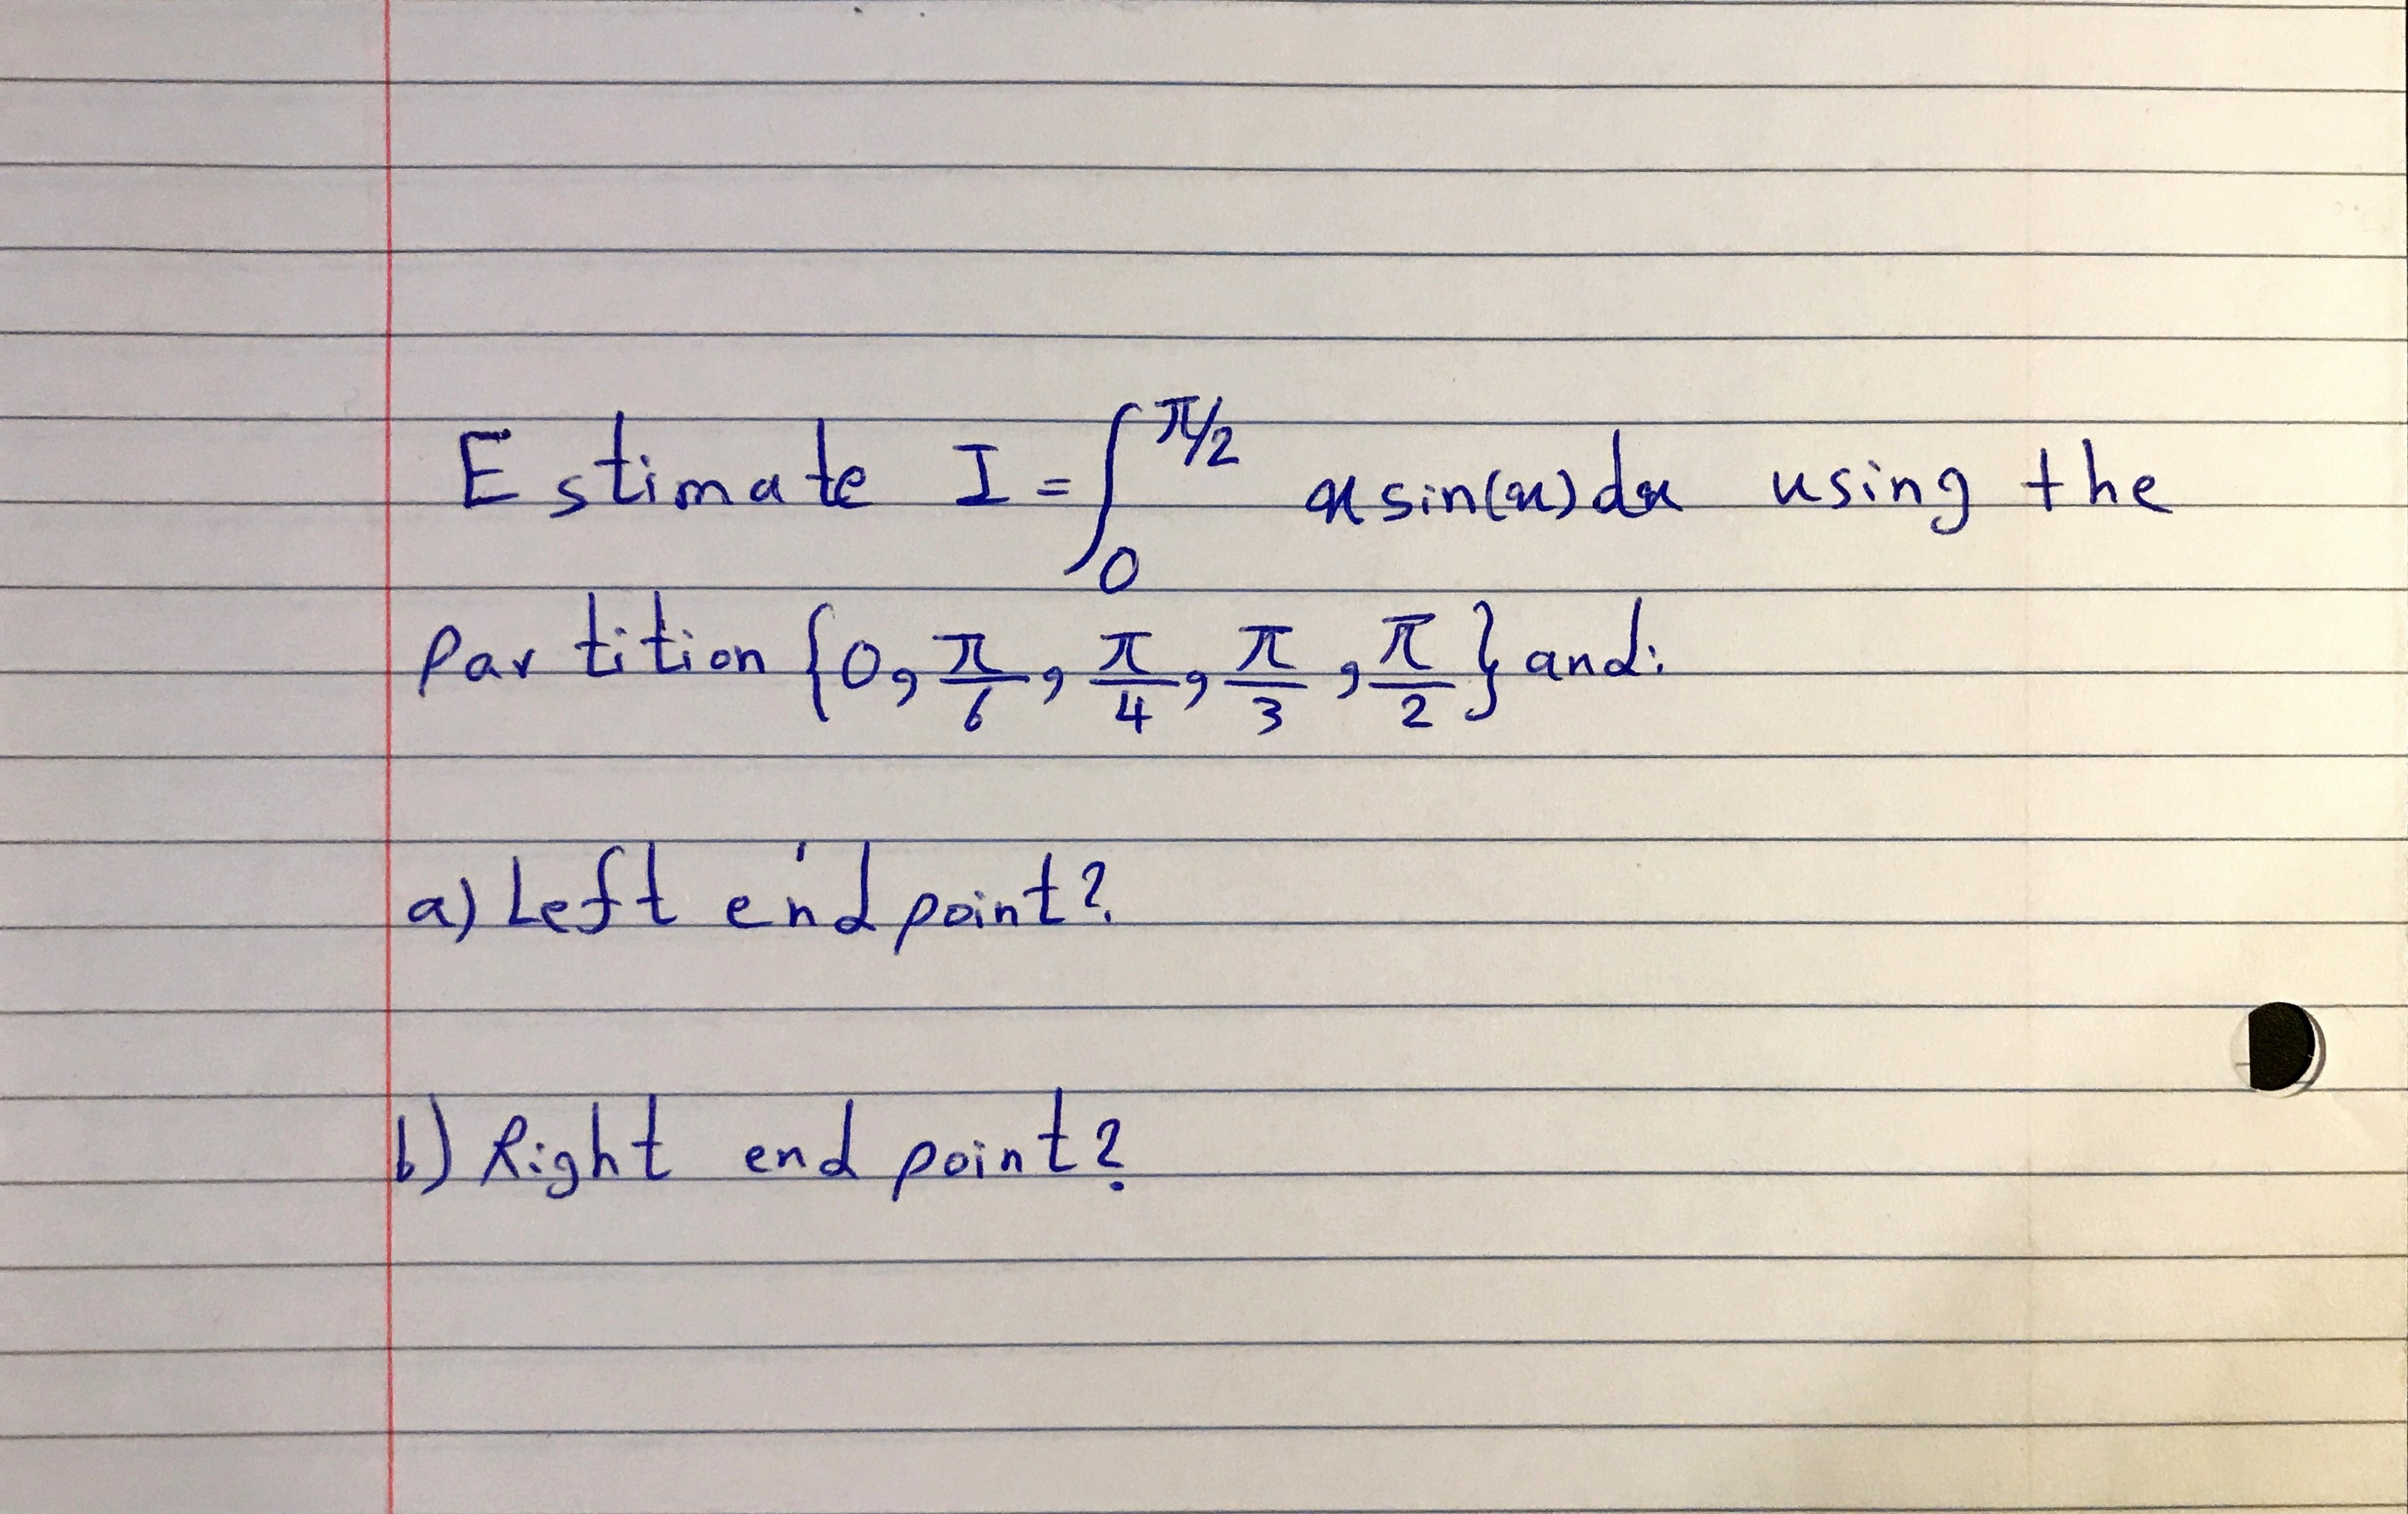 Estimate I = ∫₀^{π/2} x sin(x) dx using the
partition {0, π/6, π/4, π/3, π/2} and:
a) Left end point?
b) Right end point?